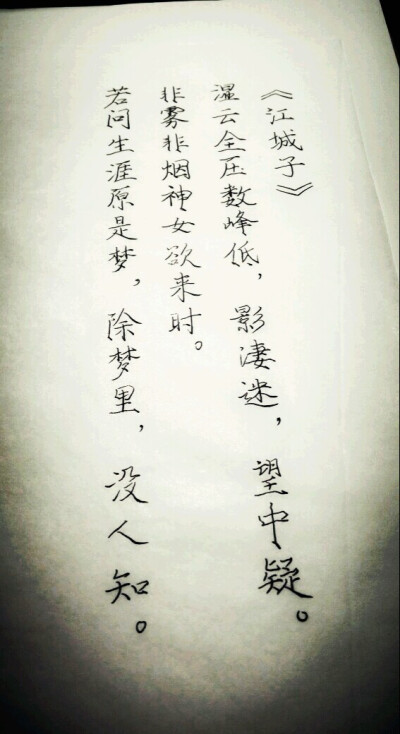 《江城子》
湿云全压数峰低，影凄迷，望中疑。
非雾非烟神女欲来时。
若问生涯原是梦，除梦里，没人知。